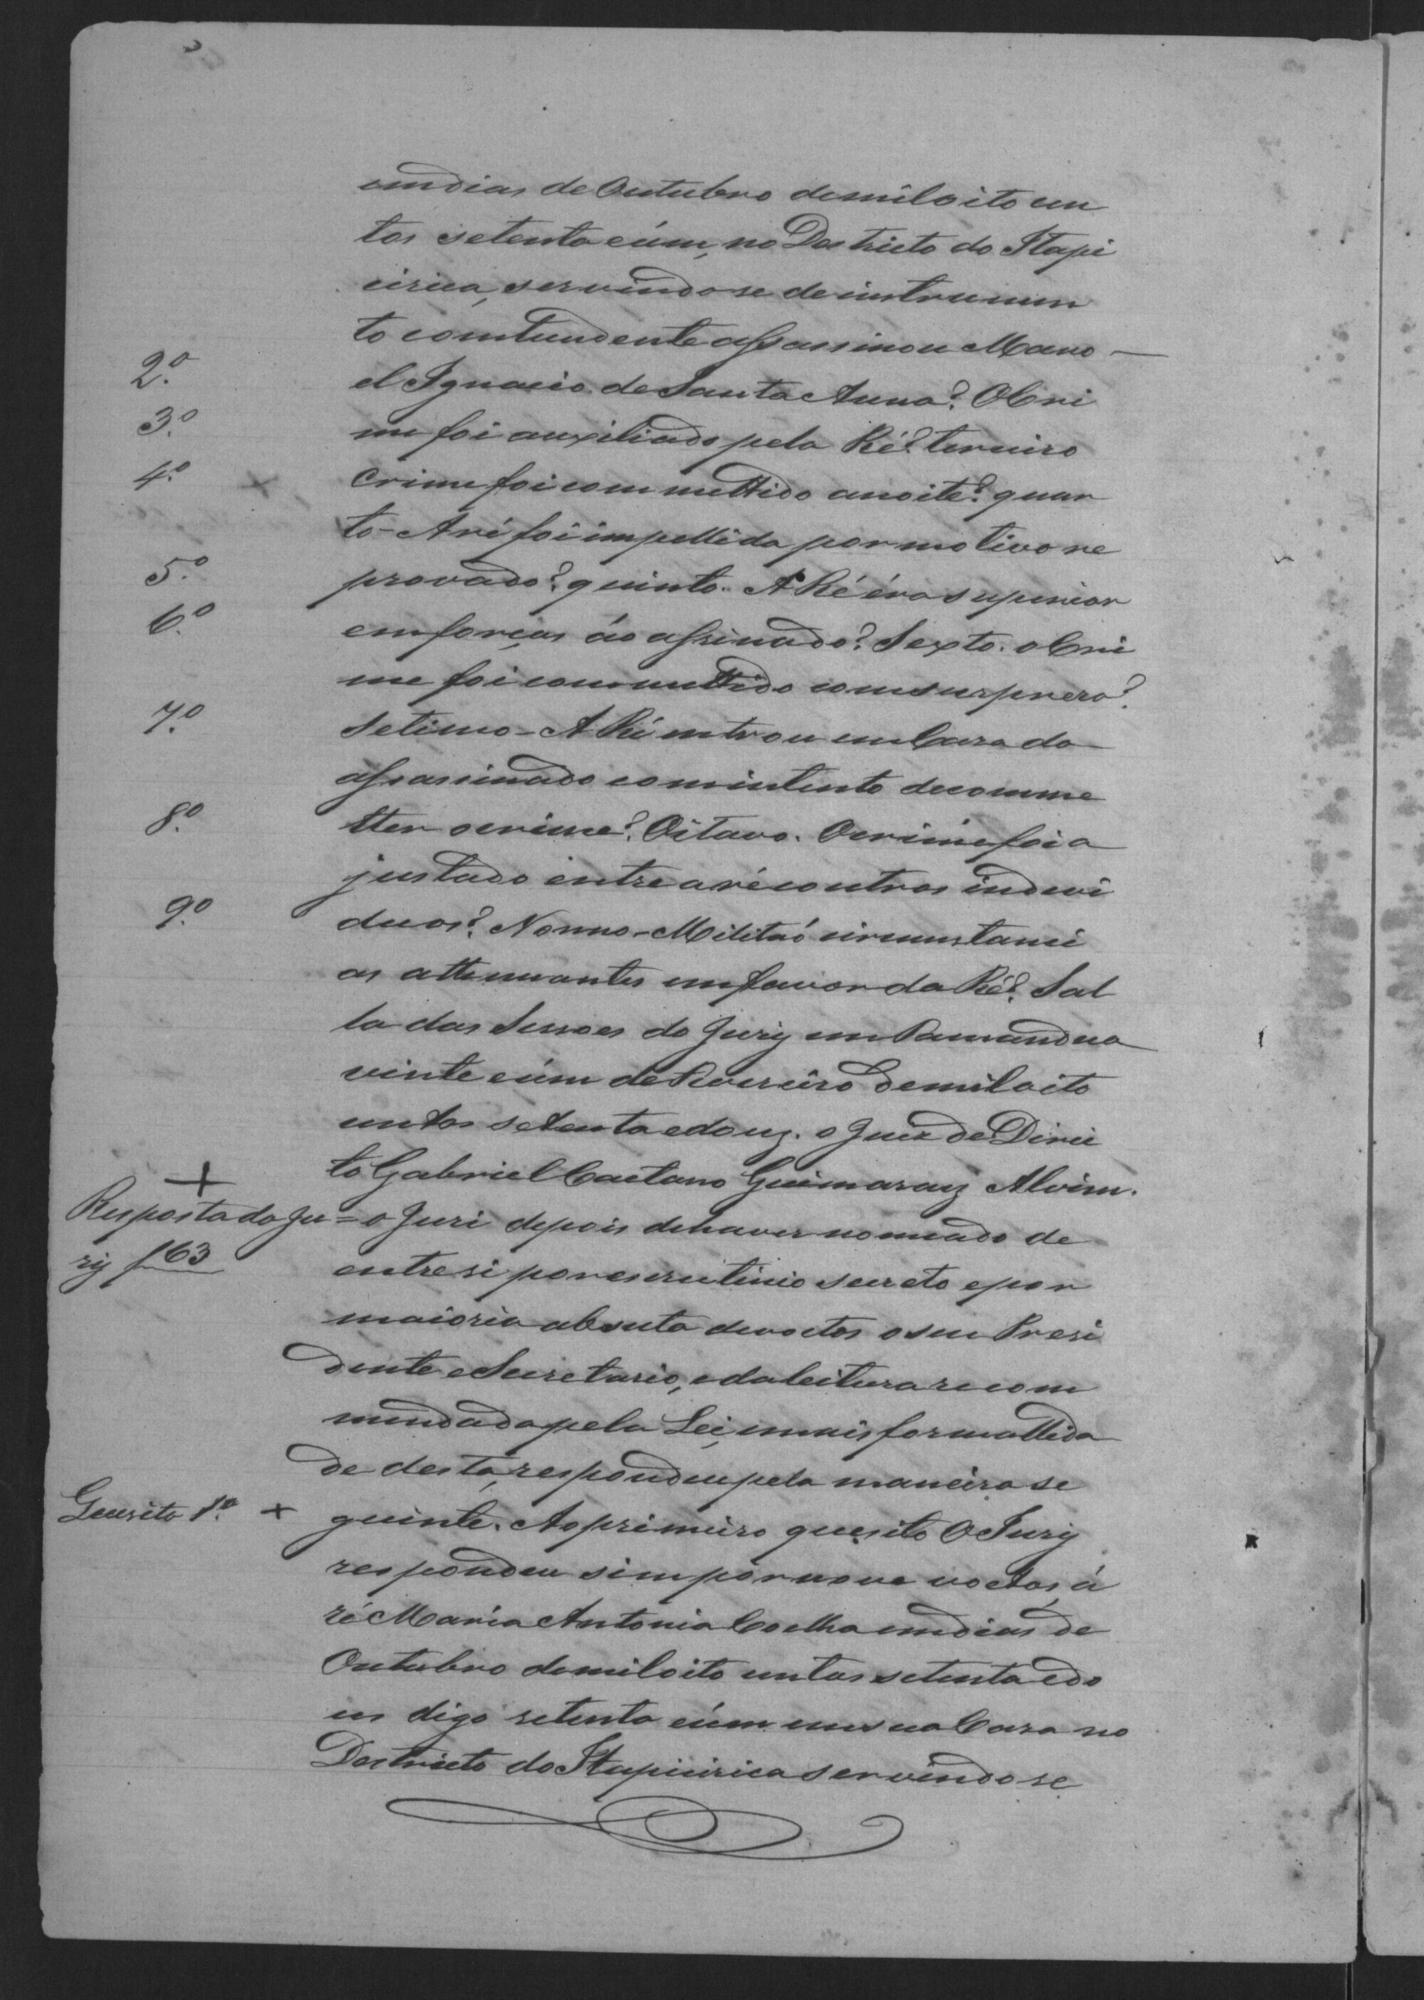 em dias de Outubro de mil oito cen
tos setenta e úm, no Destricto do Itape
cirica, servindo-se de instrumen
to comtundente assassinou Mano —
2.º
el Ignacio de Santa Anna? O Cri
3.º
me foi auxiliado pela Ré? terceiro
4.º
Crime foi commettido a noite? quar
to - A ré foi impellida por motivo re
5.º
provado? quinto. A Ré éra superior
6.º
em forças áo assinado? Sexto. o Cri
me foi commettido com surpresa?
7.º
Setimo - A Ré entrou em Casa do
assassinado com intento de comme
8.º
tter o crime? Oitavo. O crime foi a
justado entre a ré e outros indevi
9.º
duos? Nonno - Militaó circunstanci
as attenuantes em favor da Ré? Sal
la das Sessoes do Jury em Tamanduа
vinte e úm de Fevereiro de mil oito
centos setenta e douz. o Juiz de Direi
to Gabriel Caetano Guimaraiz Alvim.
Resposta do Ju = o Juri depois de haver nomeado de
ry f 63
entre si por escrutinio secreto e por
maioria absuta de voctos o seu Presi
dente e Secretario, e da leitura recom
mendada pela Lei, e mais formallida
de desta, respondeu pela maneira se
Quesito 1.º
guinte. Ao primeiro quesito O Jury
respondeu sim por nove voctos, á
ré Maria Antonia Coelha em dias de
Outubro de mil oito centos setenta e do
us digo setenta e úm em sua Casa no
Destricto do Itapicirica servindo se